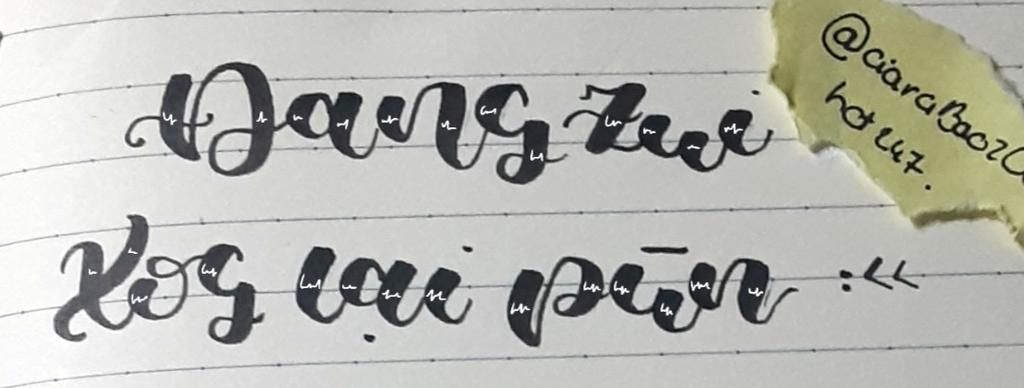 Đang zui
Xog lại pūn :<<
@ciaraBaoz
hot 247.